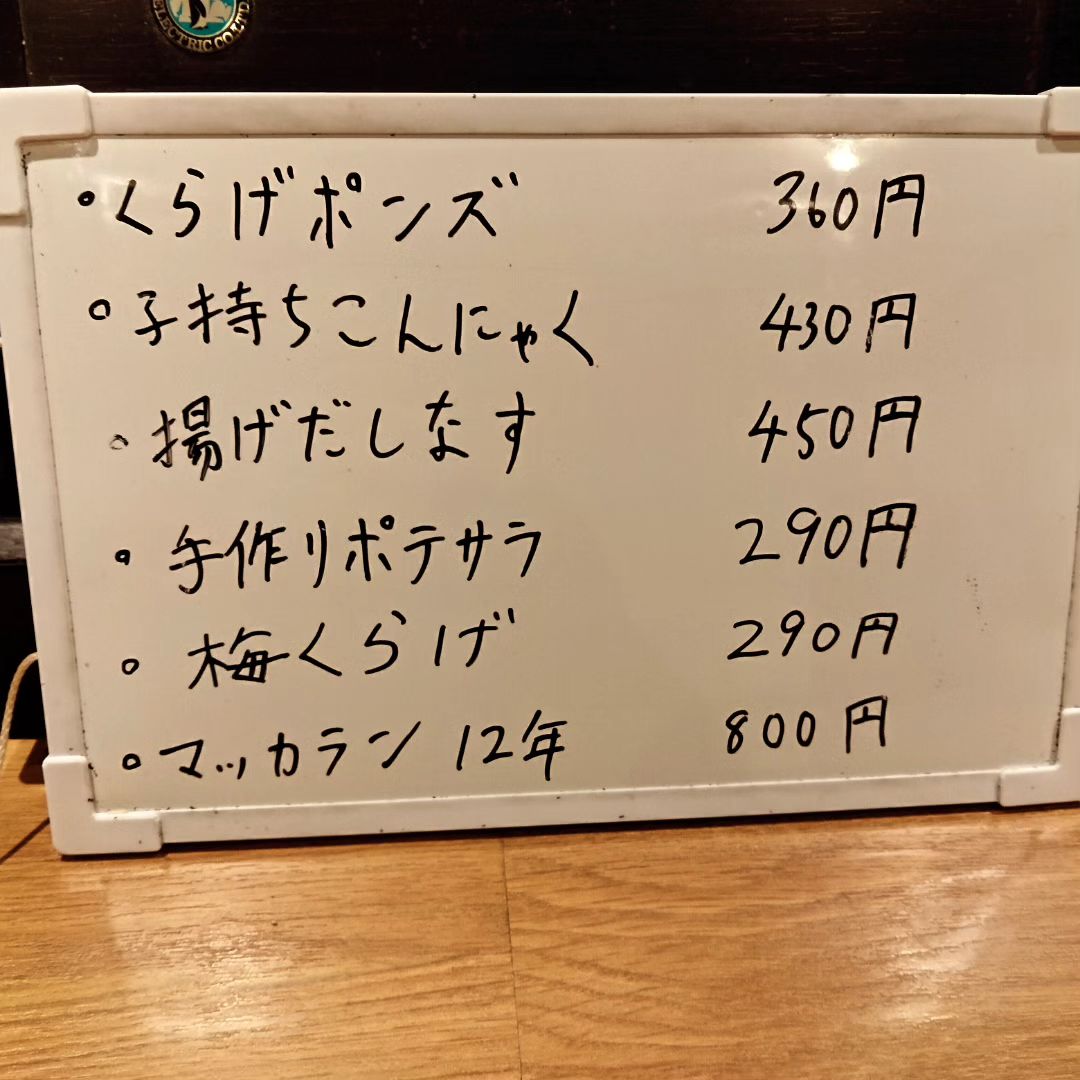 ELECTRIC CO.LTD.
・くらげポンズ 360円
・子持ちこんにゃく 430円
・揚げだしなす 450円
・手作りポテサラ 290円
・梅くらげ 290円
・マッカラン 12年 800円